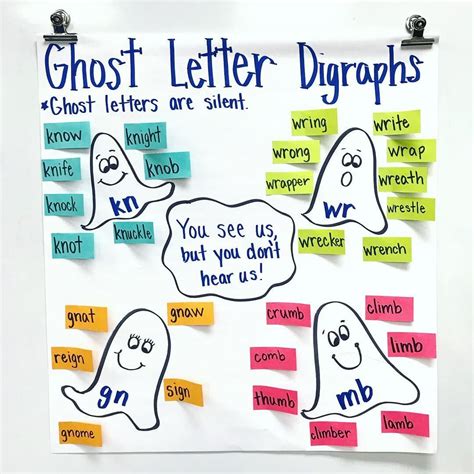 Ghost Letter Digraphs
*Ghost letters are silent.
know
knight
knife
knob
knock
knuckle
knot
kn
wring
write
wrong
wrap
wrapper
wreath
wrestle
wrecker
wrench
wr
You see us,
but you don't
hear us!
gnat
gnaw
reign
sign
gnome
gn
crumb
climb
comb
limb
thumb
climber
lamb
mb